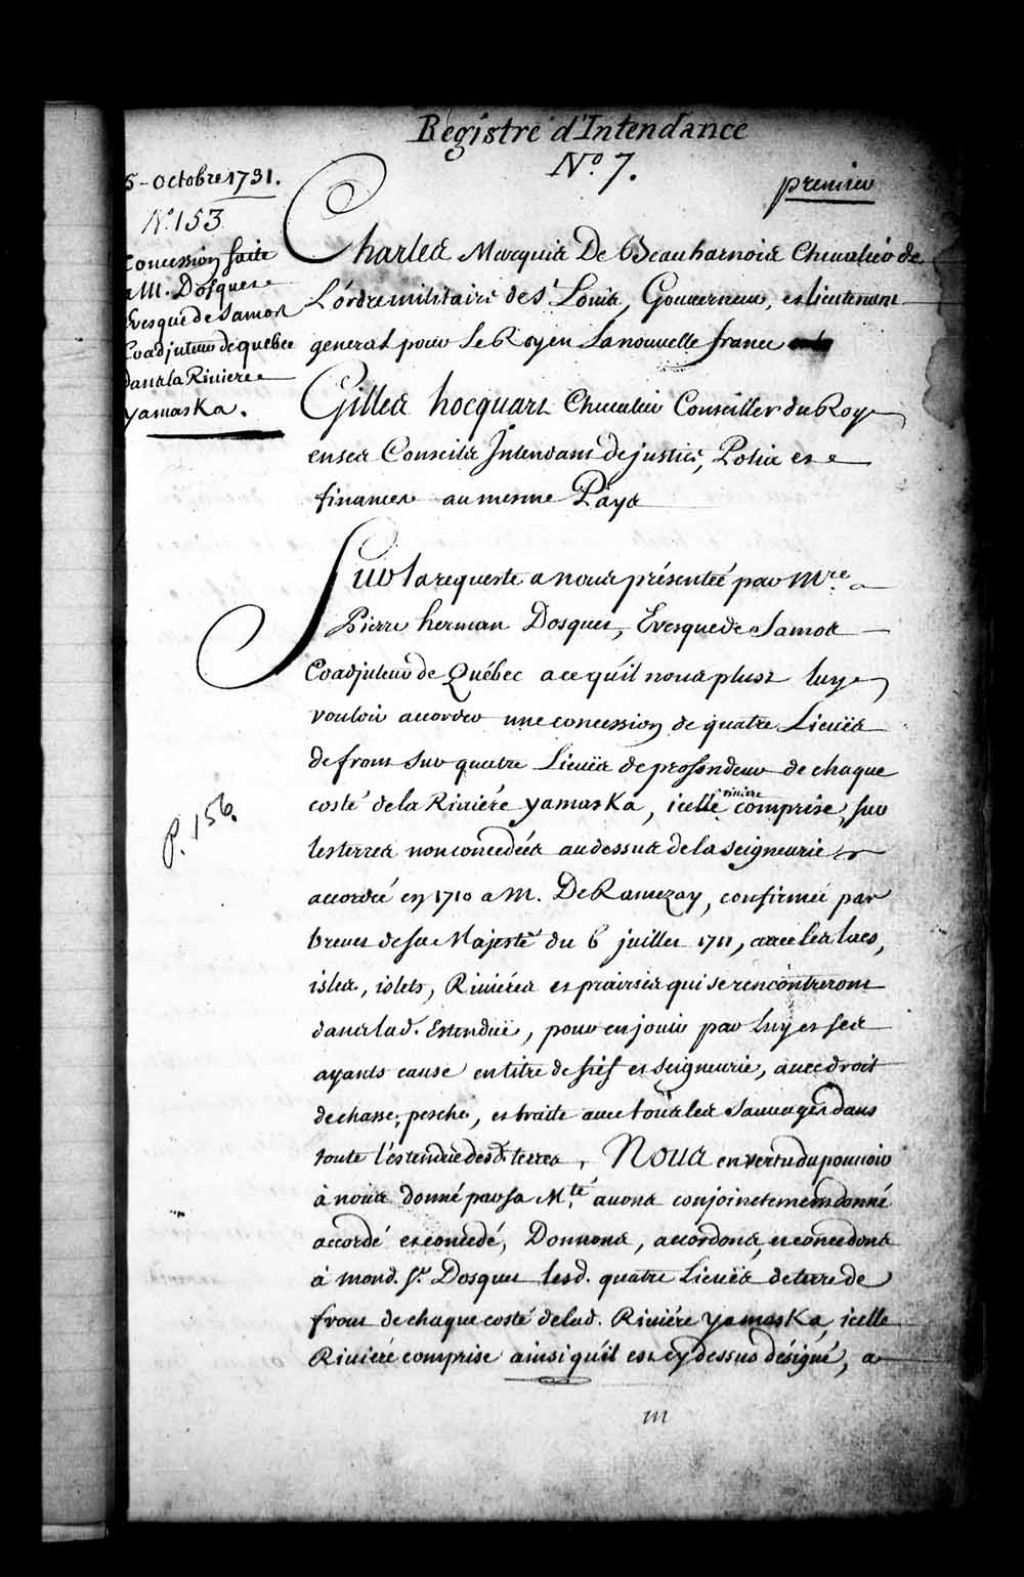 Régistre d'Intendance
N.º 7.
premier
5 - octobre 1731.
Nº 153
Concession faite
a M. Dosquet
Evesque de Samos
Coadjuteur de quebec
dans la Riviere
yamaska.
Charles Marquis De Beauharnois Chevalier de
L'ordre militaire de St Louis, Gouverneur, et lieutenant
general pour Le Roy en La nouvelle france
Gilles hocquart Chevalier Conseiller du Roy
en ses Conseils Intendant de justice, Police et
finances au mesme Pays
Sur la requeste a nous présenteé par Mre
Pierre herman Dosquet, Evesque de Samos
Coadjuteur de Québec a ce qu'il nous plust luy
vouloir accorder une concession de quatre Lieuës
de front sur quatre Lieuës de profondeur de chaque
costé de la Riviére yamaska, icelle riviere comprise, sur
les terres non concedéés au dessus de la seigneurie
accordeé en 1710 a M. De Ramezay, confirmeé par
brevet de sa Majesté du 6 juillet 1711, avec les lacs,
isles, islets, Riviéres et prairies qui se rencontreront
dans lad. Estenduë, pour en jouir par Luy et ses
ayants cause en titre de fief et seigneurie, avec droit
de chasse, pesche, et traite avec tous les Sauvages dans
toute l'estendue desd. terres, Nous en vertu du pouvoir
à nous donné par sa Mté avons conjoinctement donné
accordé et concedé, Donnons, accordons, et concedons
à mond. Sr. Dosquet lesd. quatre Lieuës de terre de
front de chaque costé de lad. Riviére yamaska, icelle
Riviére comprise ainsi qu'il est cy dessus désigné, a
P. 156.
m